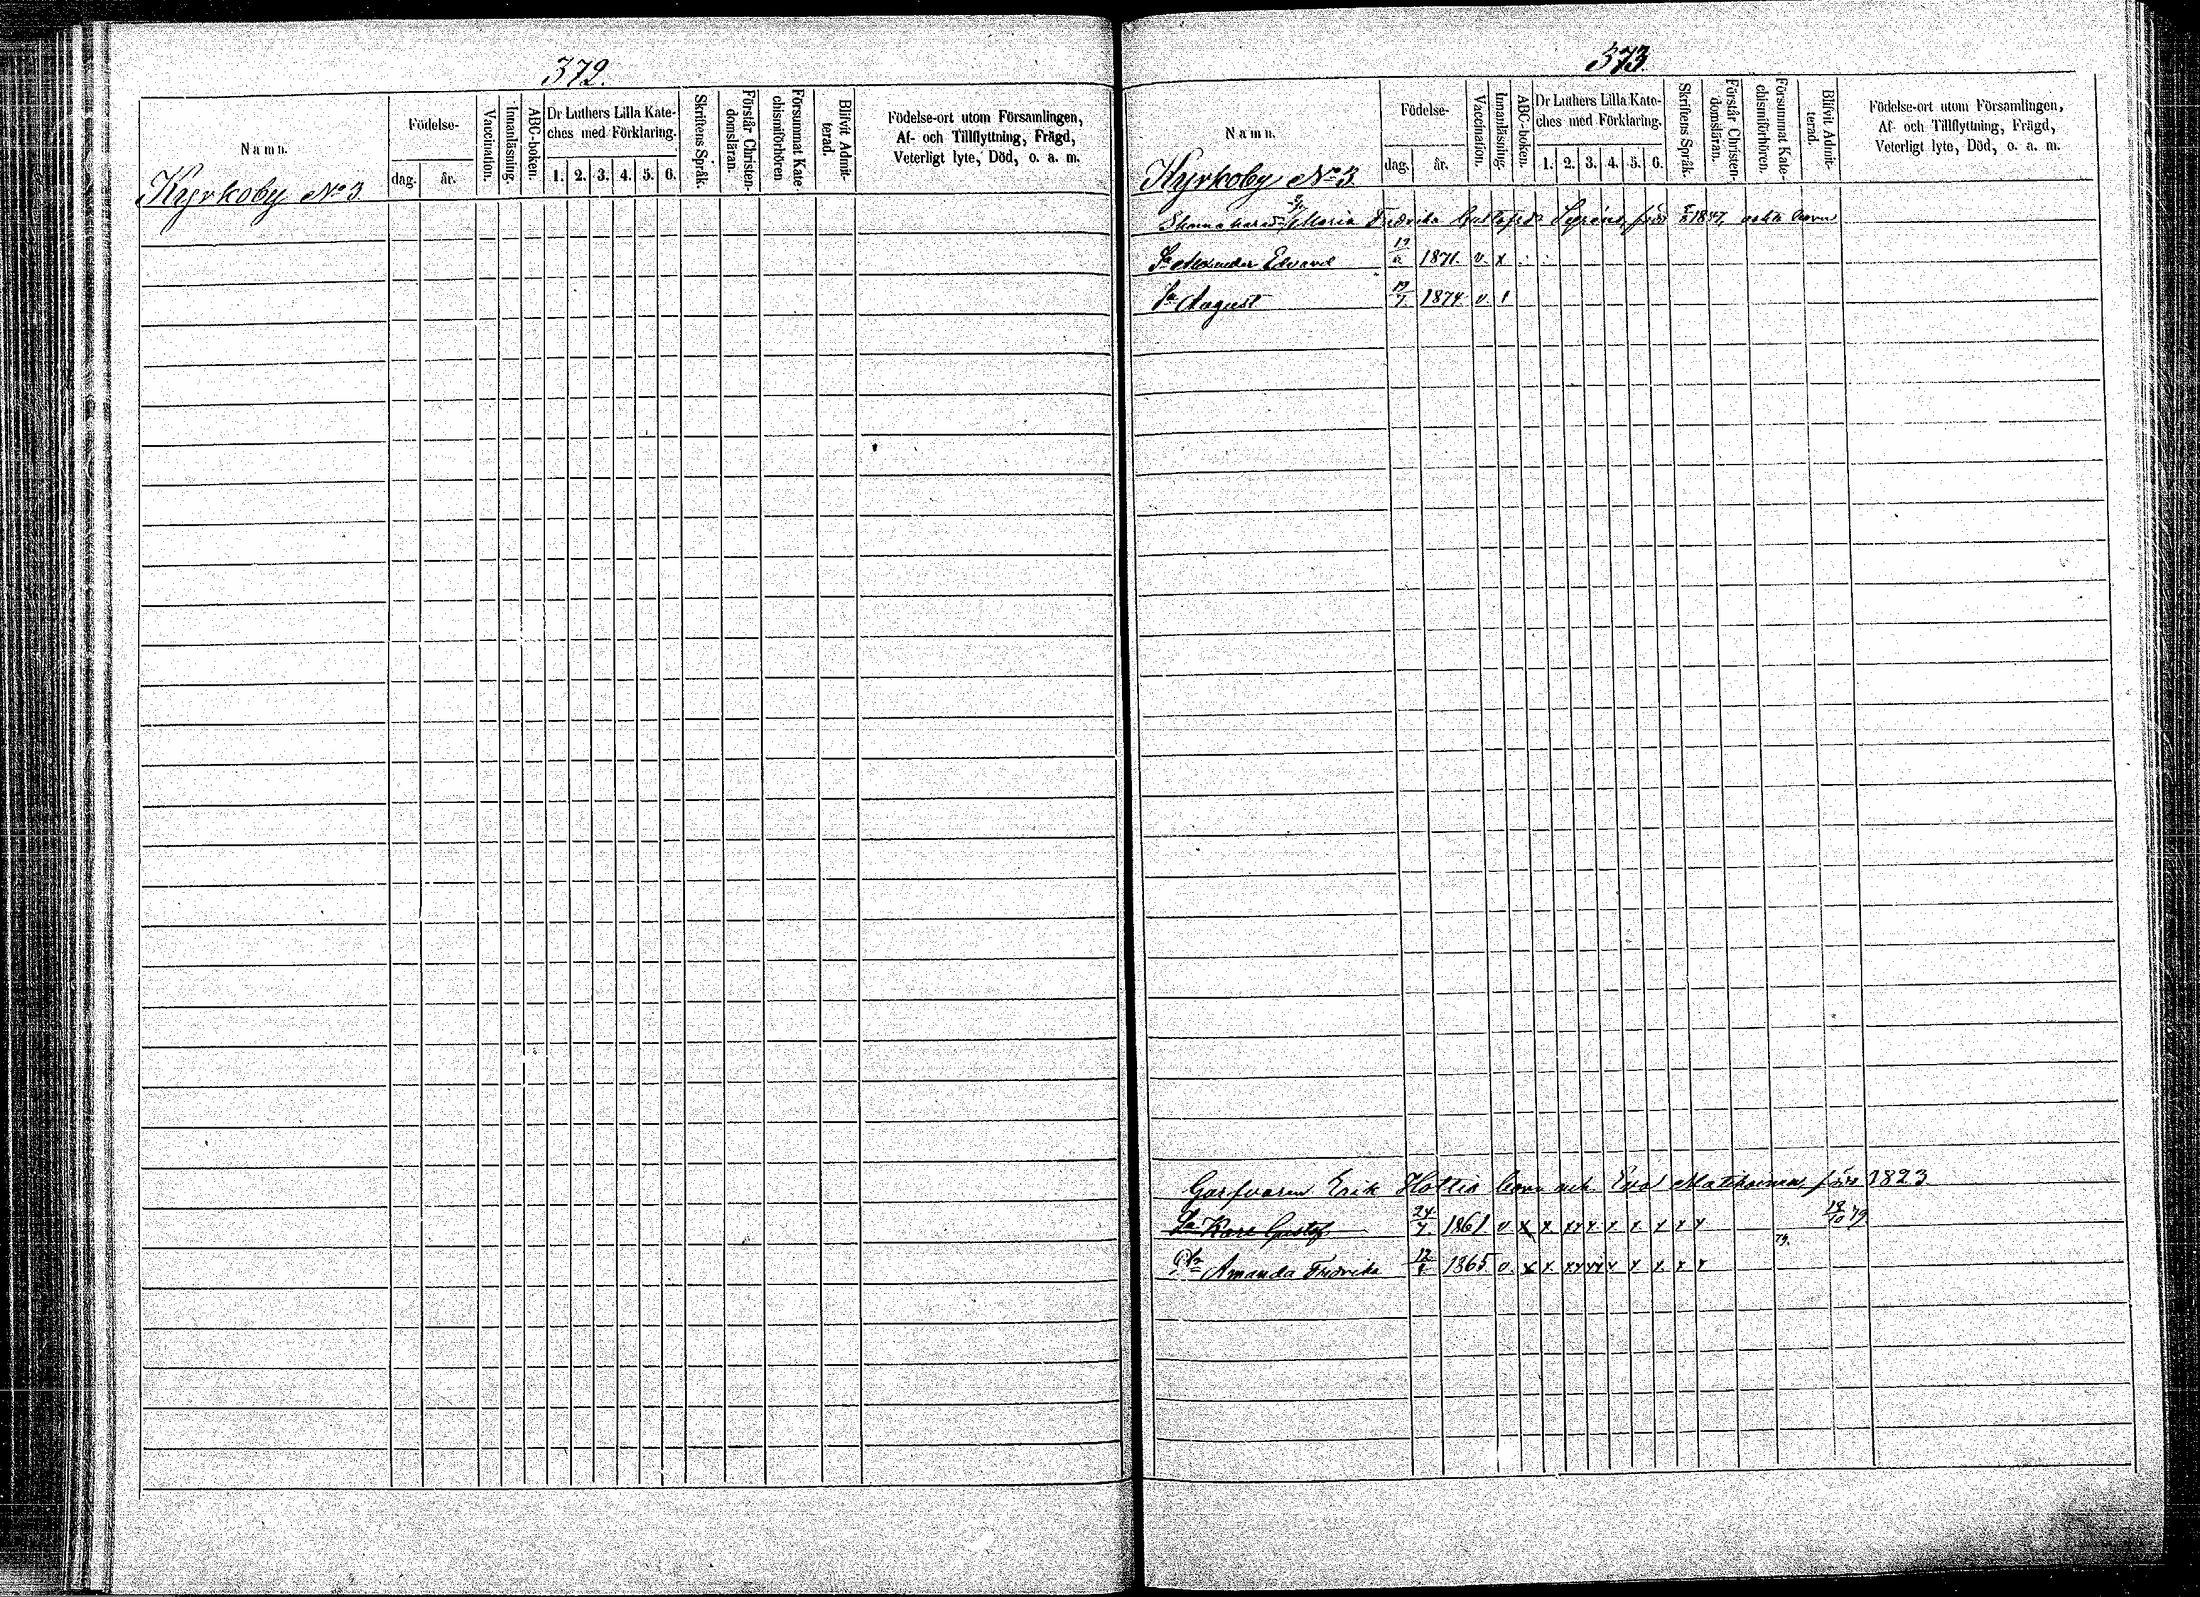 372.
Namn.
Födelse-
dag. år.
Vaccination.
Innanläsning.
ABC-boken.
Dr Luthers Lilla Kate-
ches med Förklaring.
1. 2. 3. 4. 5. 6.
Skriftens Språk.
Förstår Christen-
domsläran.
Försummat Kate-
chismiförhören
Blifvit Admit-
terad.
Födelse-ort utom Församlingen,
Af- och Tillflyttning, Frägd,
Veterligt lyte, Död, o. a. m.
Kyrkoby No 3.
373.
Namn.
Födelse-
dag. år.
Vaccination.
Innanläsning.
ABC-boken.
Dr Luthers Lilla Kate-
ches med Förklaring.
1. 2. 3. 4. 5. 6.
Skriftens Språk.
Förstår Christen-
domsläran.
Försummat Kate-
chismiförhören.
Blifvit Admit-
terad.
Födelse-ort utom Församlingen,
Af- och Tillflyttning, Frägd,
Veterligt lyte, Död, o. a. m.
Kyrkoby No 3.
Maria Fredrika Gustafsdr född 1847, barn
Sn Alexander Edvard 1871. v. x
Sn August 19/7 1874. v. 1
Garfvaren Erik Hottis barn och Eva född 1823
Sn Karl Gustaf 24/7. 1861. v x x x x x x x x x x 19/10 79.
79.
Dr Amanda Fredrika 1865 v. x x x x x x x x x x x